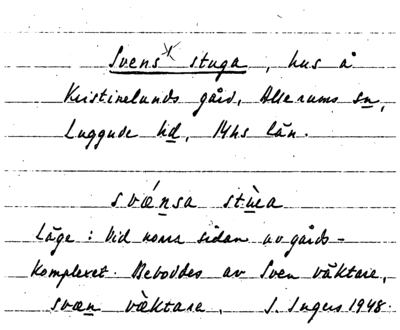 Svens stuga, hus å
Kristinelunds gård, Allerums sn,
Luggude hd, Mhs län.
svǽnsa stùa
Läge: Vid norra sidan av gårds-
komplexet. Beboddes av Sven väktare,
svæn væktare. S. Ingers 1948.